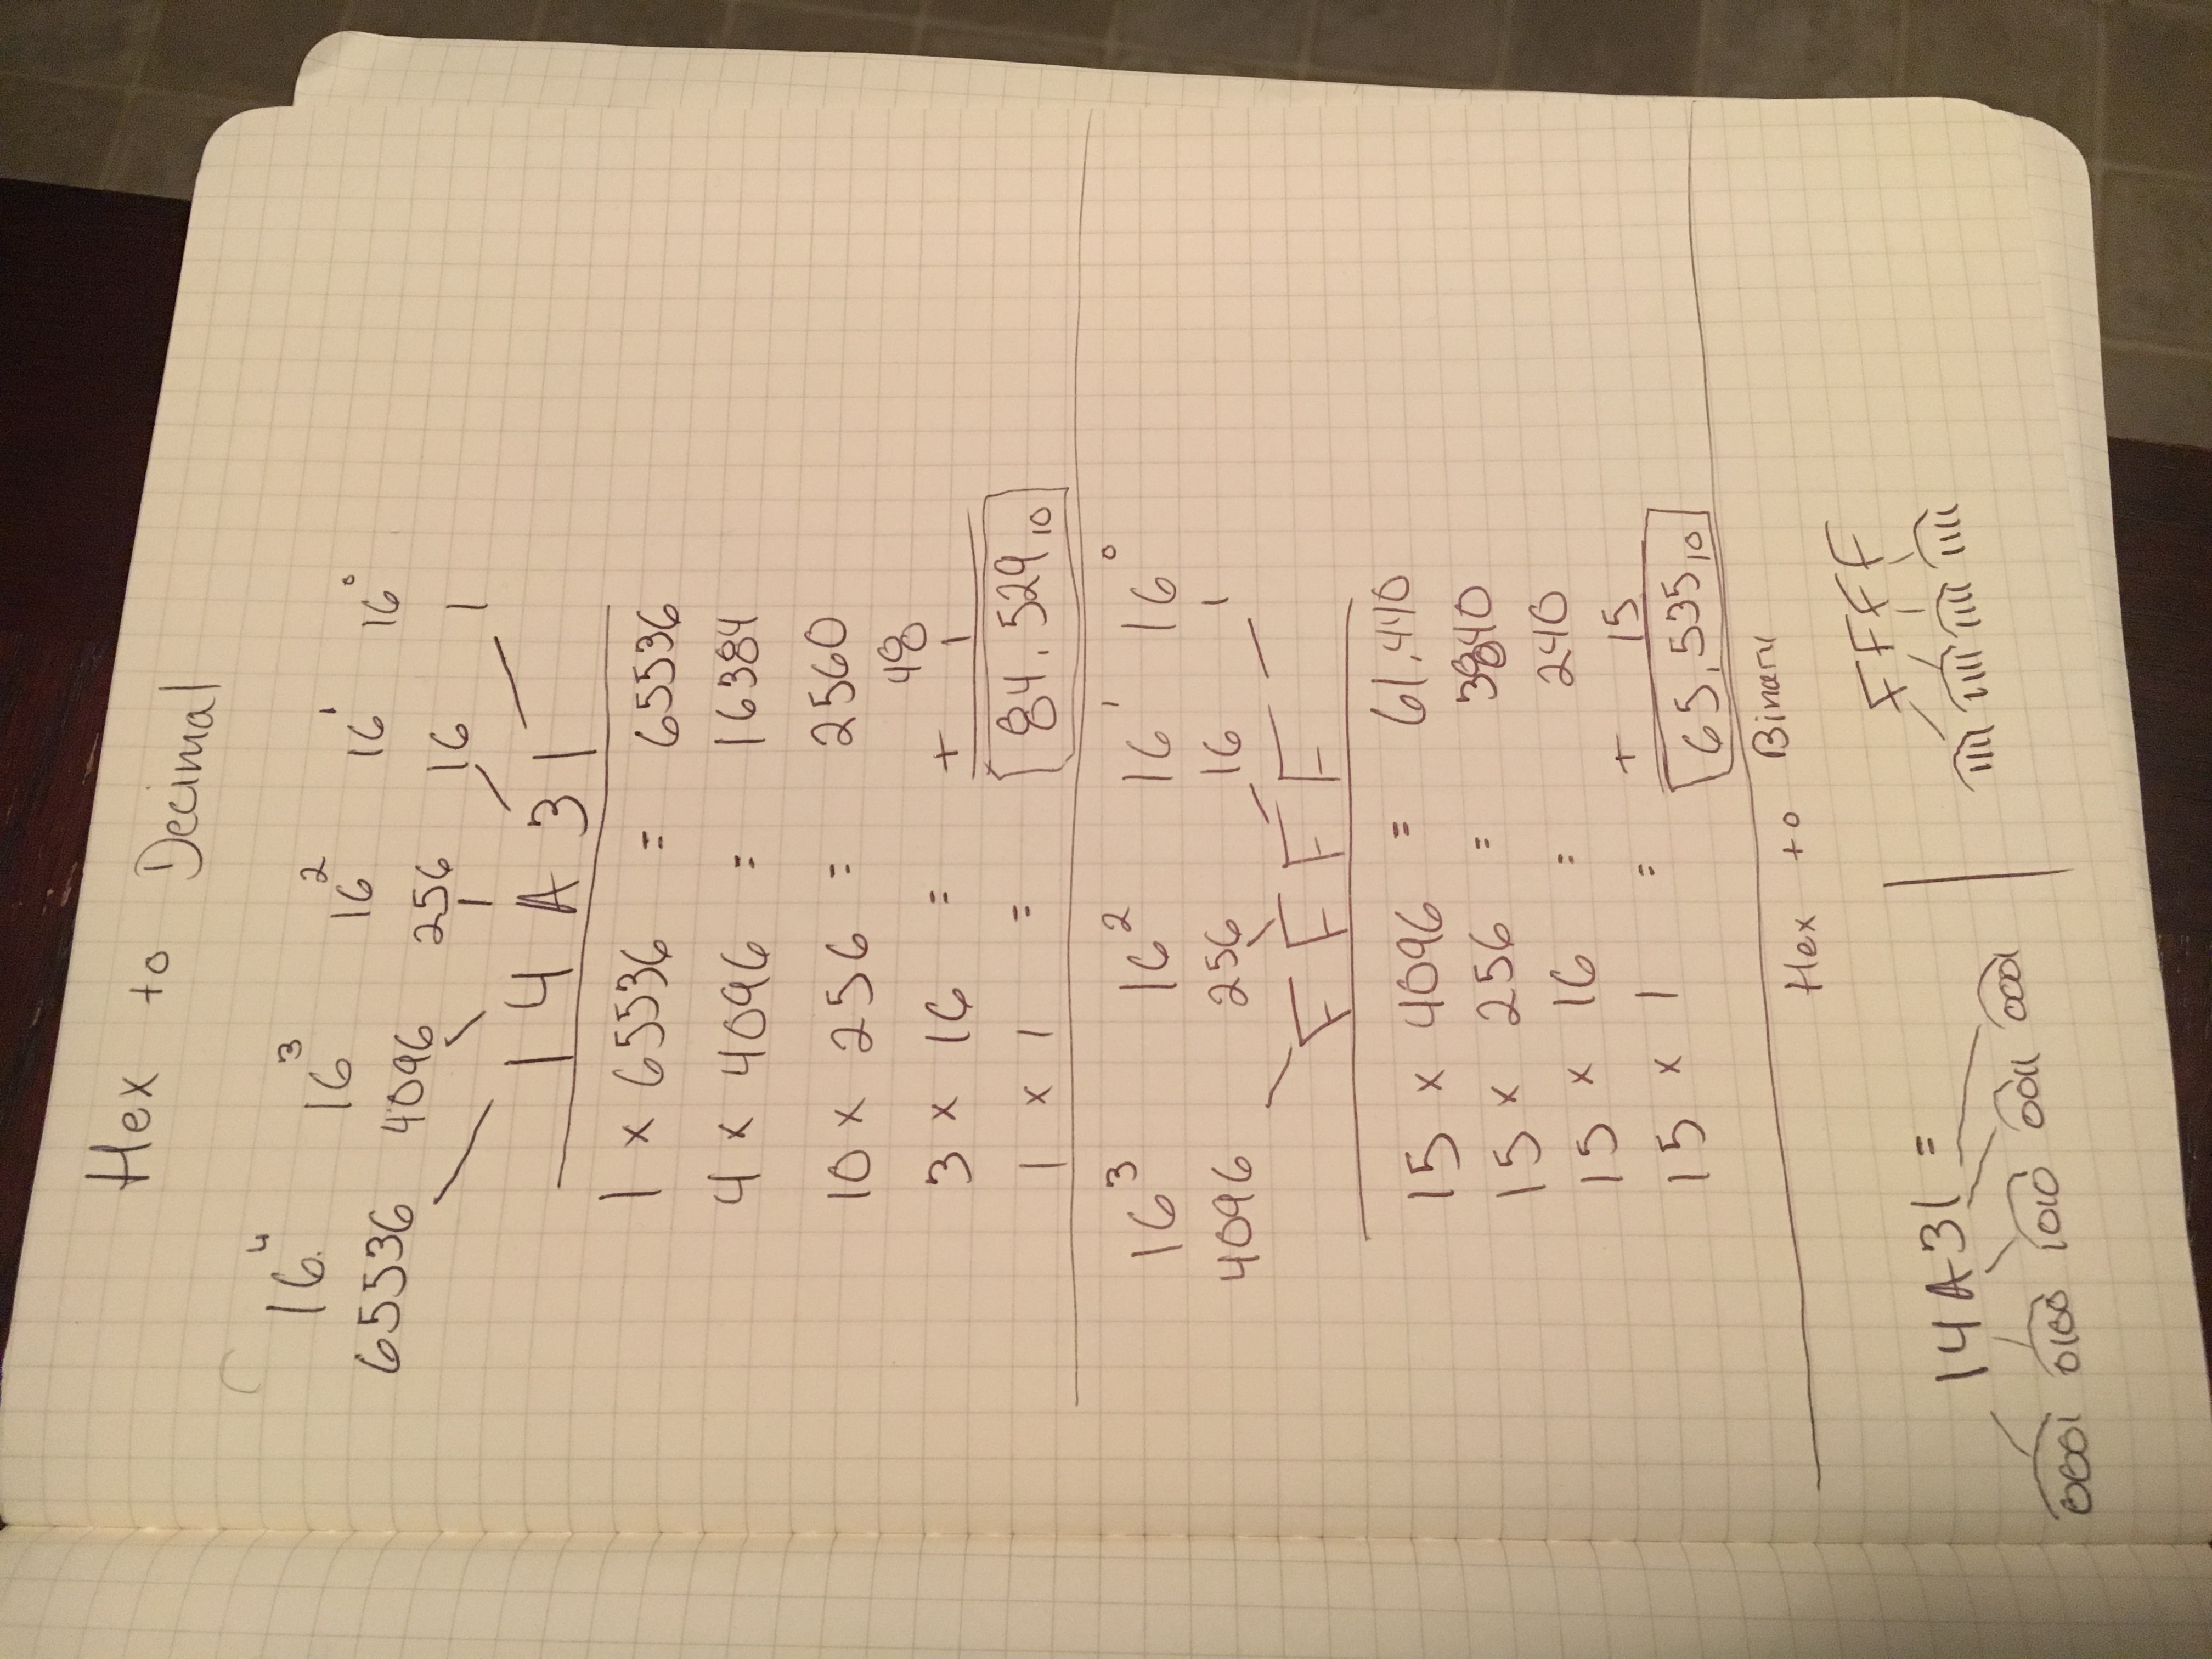 Hex to Decimal
16⁴ 16³ 16² 16¹ 16⁰
65536 4096 256 16 1
14A31
1 × 65536 = 65536
4 × 4096 = 16384
10 × 256 = 2560
3 × 16 = 48
1 × 1 = + 1
84,529₁₀
16³ 16² 16¹ 16⁰
4096 256 16 1
FFFF
15 × 4096 = 61,440
15 × 256 = 3840
15 × 16 = 240
15 × 1 = + 15
65,535₁₀
Hex to Binary
14A31 =
0001 0100 1010 0011 0001
FFFF
1111 1111 1111 1111